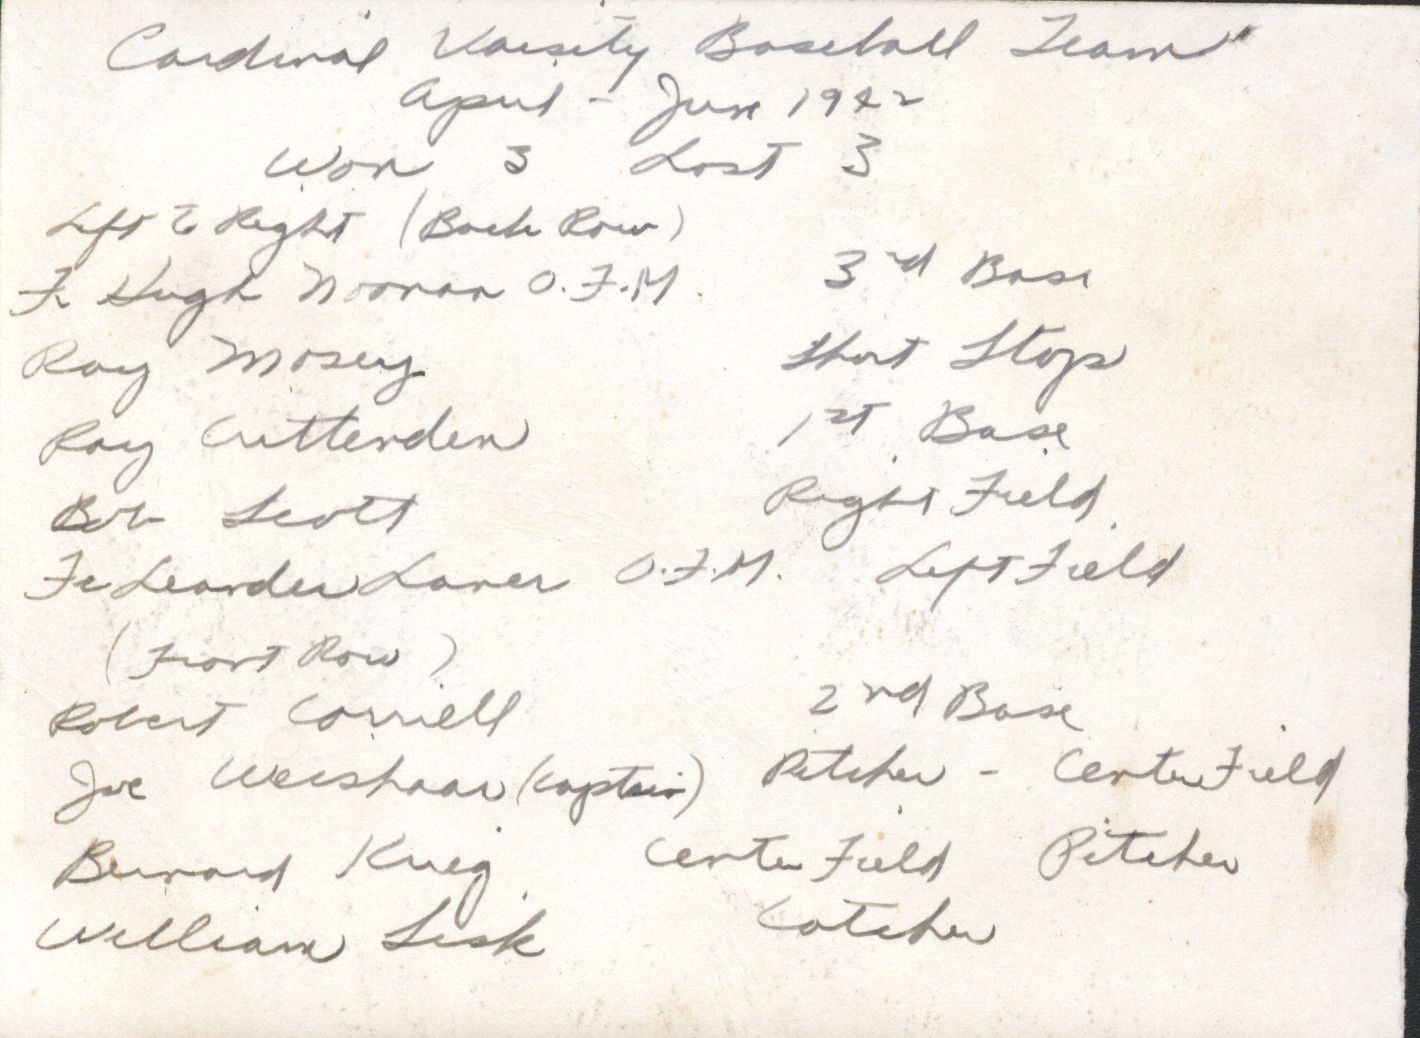 Cardinal Varsity Baseball Team"
April - June 1942
Won 3 Lost 3
Left to Right (Back Row)
Fr. Hugh Noonan O.F.M. 3rd Base
Ray Mosey Short Stop
Ray Cruttenden 1st Base
Bob Scott Right Field
Fr Leander Laner O.F.M. Left Field
(Front Row)
Robert Correll 2nd Base
Joe Weishaar (Captain) Pitcher - Center Field
Bernard Krieg Center Field Pitcher
William Sisk Catcher